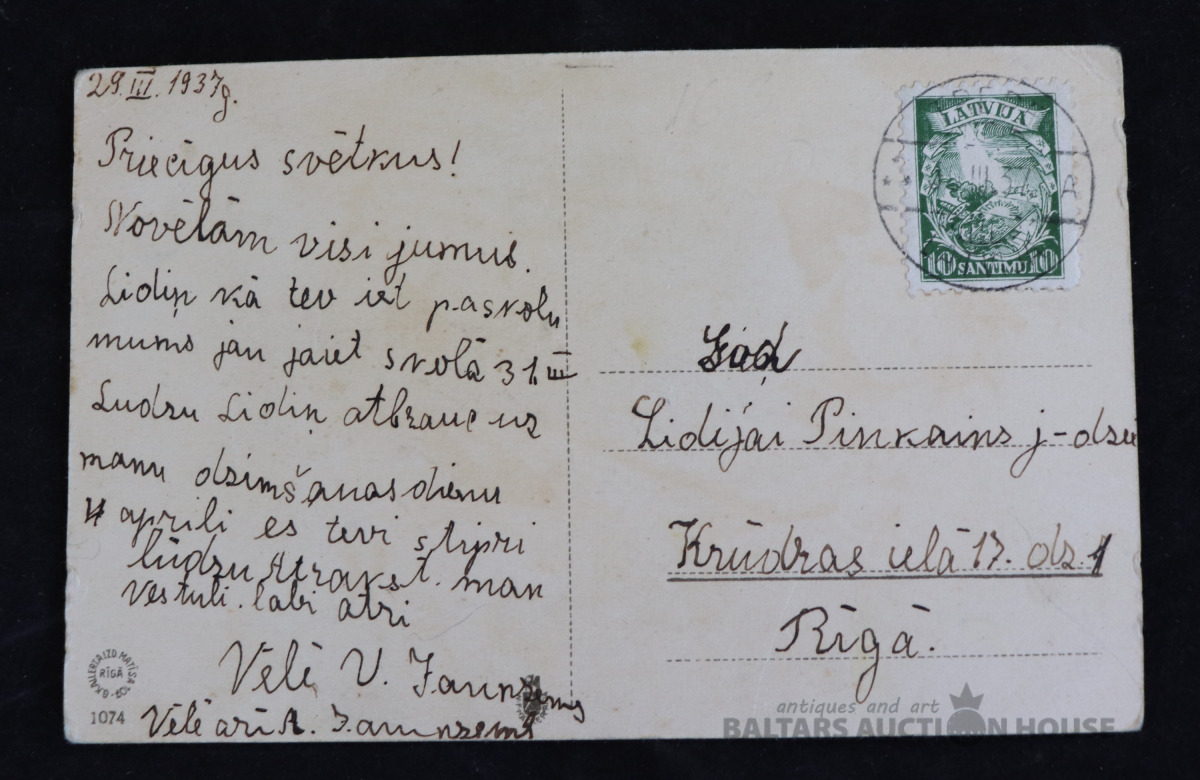 29.III.1937g.
Priecīgus svētkus!
Novēlām visi jumis.
Lidiņ kā tev iet pa skolu
mums jau jaiet skolā 31.III
Ludzu Lidiņ atbrauc uz
manu dzimšanas dienu
4 aprili es tevi stipri
lūdzu Atrakst. man
vestuli. labi ātri
Vēlē V. Jaunzems
Vēlē arī A. Jaunzems
LATVIJA
10 SANTIMU 10
Lidijai Pinkains j-dzei
Krūdras ielā 17. dz. 1
Rīgā.
RĪGĀ
1074
antiques and art
BALTARS AUCTION HOUSE